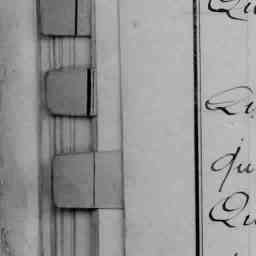 Qu
Qu
qu
Qu